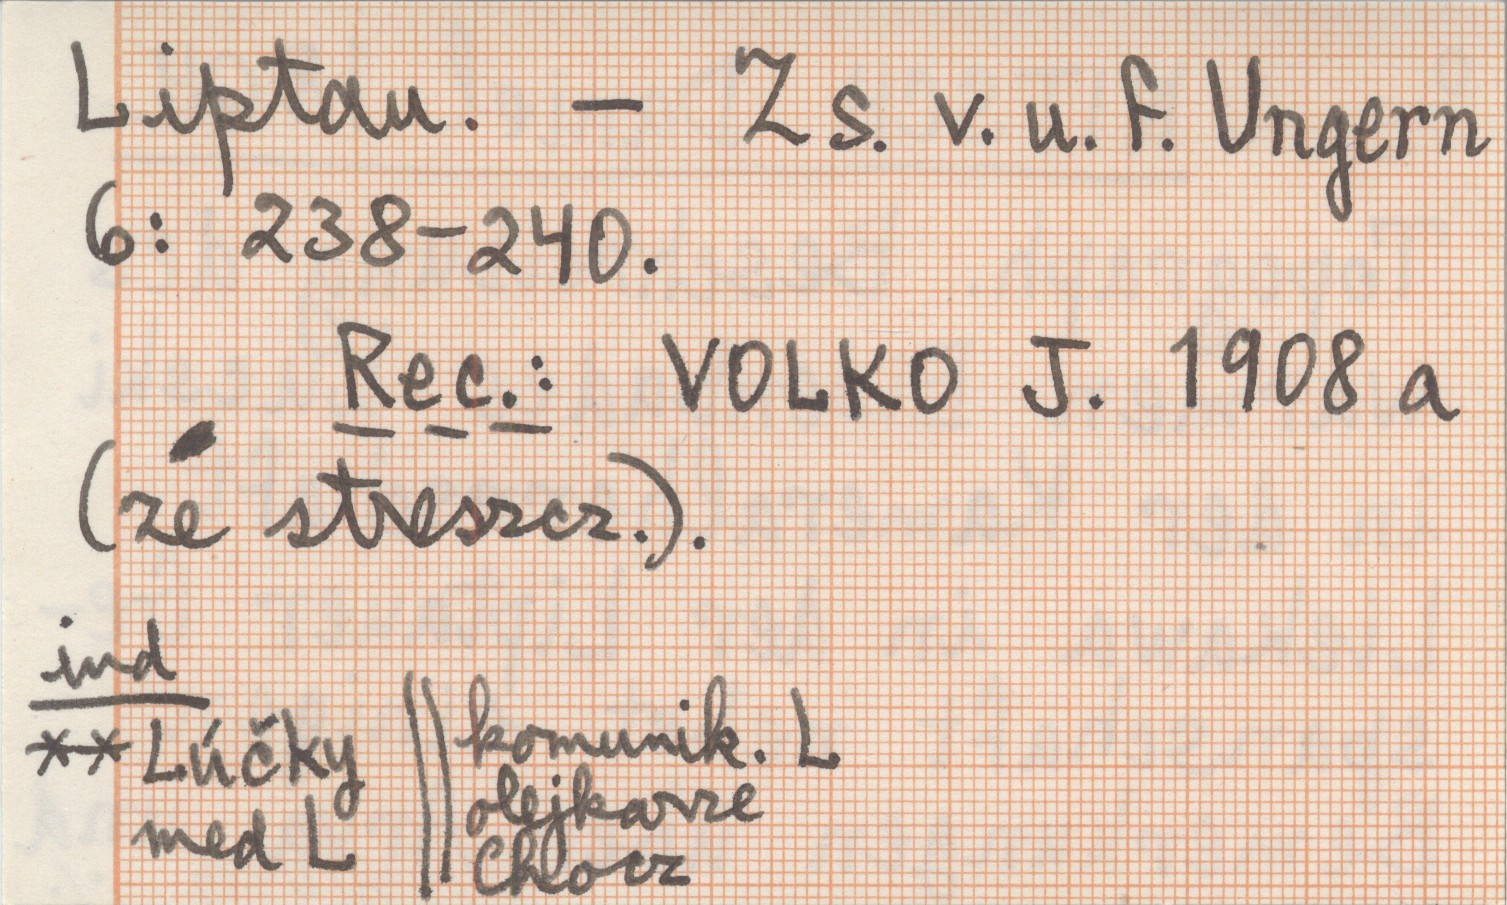 Liptau. — Zs. v. u. f. Ungern
6: 238-240.
Rec.: VOLKO J. 1908 a
(ze streszcz.).
ind
** Lúčky || komunik. L
med L || olejkarze
Chocz